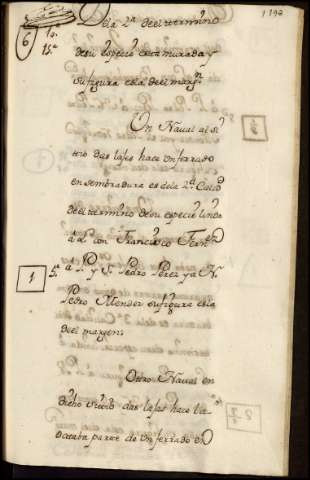 1192
6
1ª
15ª
dela 2ª del termino
desu especie esta murada y
su figura esla del margn
Un Naval al si
tio das lajes hace un ferrado
en sembradura es dela 2ª Calid
del termino de su especie linda
a L. con Francisco Fern
1
5ª
a P. y S. Pedro Perez y a N.
Pedro Mendez su figura esla
del margen:
Ottro Naval en
dicho sittio das lajes hace la
octaba parte de un ferrado en